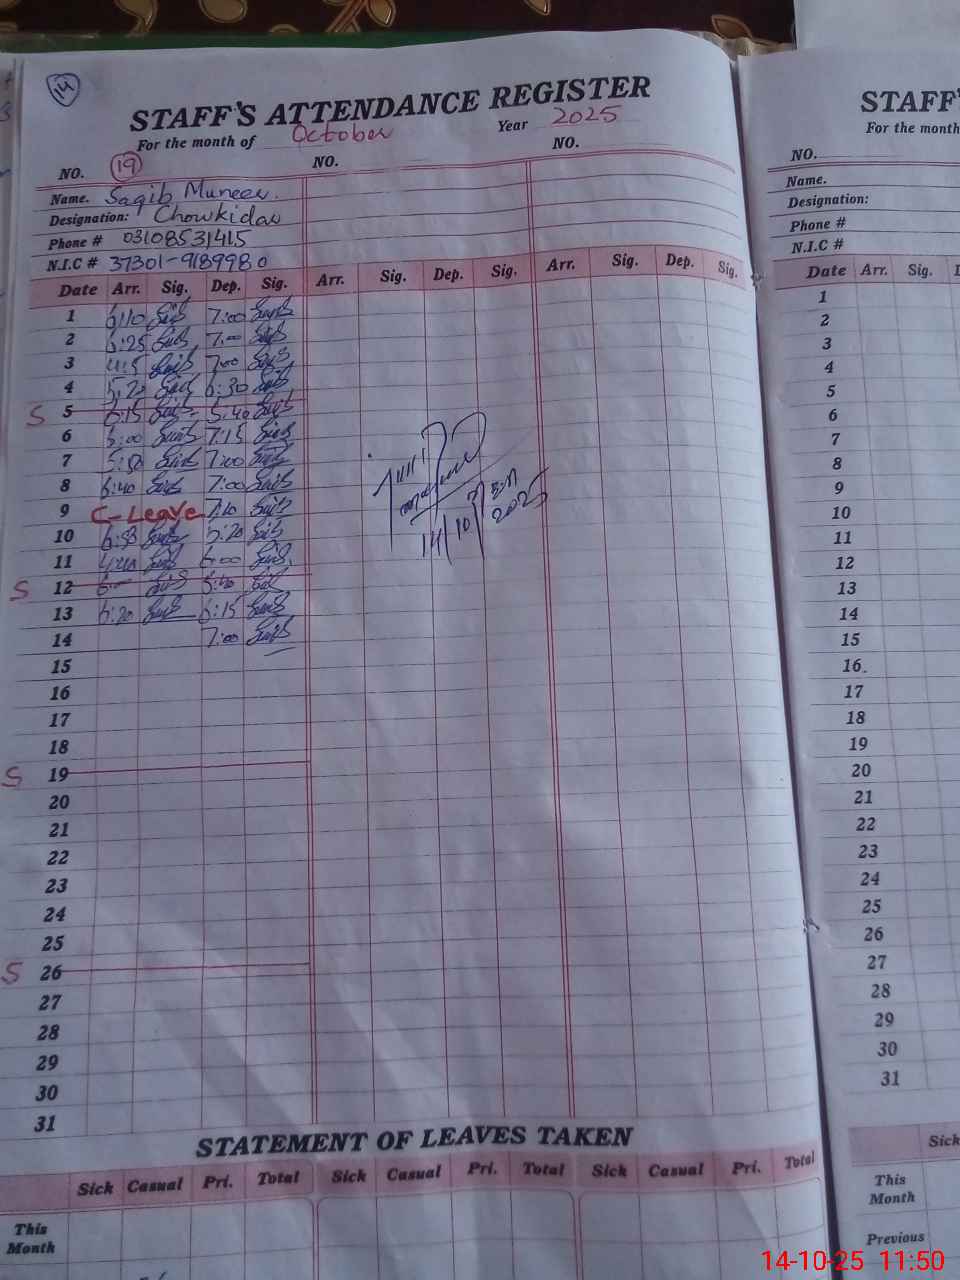 14
STAFF'S ATTENDANCE REGISTER
For the month of October Year 2025
NO. 19 NO. NO.
Name. Saqib Muneer.
Designation: Chowkidar
Phone # 03108531415
N.I.C # 37301-9189980
Date Arr. Sig. Dep. Sig. Arr. Sig. Dep. Sig. Arr. Sig. Dep. Sig.
1 6:10 7:00
2 6:25 7:00
3 7:00
4 5:20 6:30
S 5 6:15 5:40
6 6:00 7:15
7 5:50 7:00
8 6:40 7:00
9 C-Leave 7:10
10 5:20
11 6:00
S 12
13 6:20 6:15
14 7:00
14/10/2025
15
16
17
18
S 19
20
21
22
23
24
25
S 26
27
28
29
30
31
STATEMENT OF LEAVES TAKEN
Sick Casual Pri. Total Sick Casual Pri. Total Sick Casual Pri. Total
This
Month
STAFF'
For the month
NO.
Name.
Designation:
Phone #
N.I.C #
Date Arr. Sig.
1
2
3
4
5
6
7
8
9
10
11
12
13
14
15
16.
17
18
19
20
21
22
23
24
25
26
27
28
29
30
31
Sick
This
Month
Previous
14-10-25 11:50